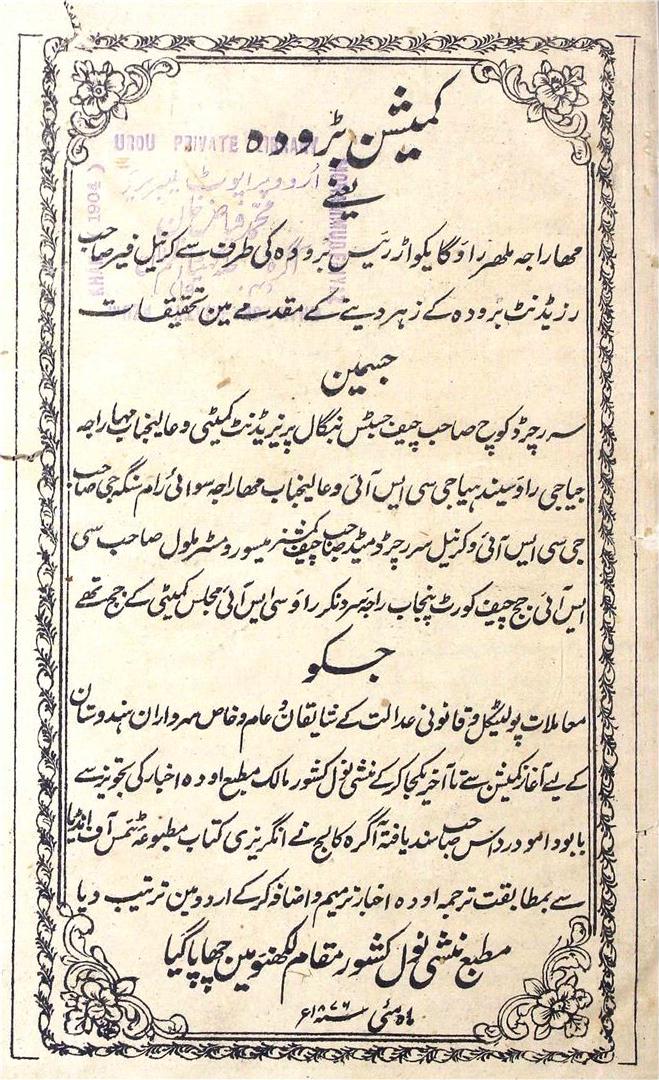 کمیشن بڑودہ
یعنے
مہاراجہ ملہر راو گایکواڑ رئیس بڑودہ کی طرف سے کرنیل فیر صاحب
رزیڈنٹ بڑودہ کے زہر دینے کے مقدمے مین تحقیقات
جسمین
سر رچرڈ کوچ صاحب چیف جسٹس بنگال پریزیڈنٹ کمیٹی و عالیجناب مہاراجہ
جیاجی راو سیندہیا جی سی ایس آئی و عالیجناب مہاراجہ سوائی رام سنگہ جی صاحب
جی سی ایس آئی و کرنیل سر رچرڈ میڈ صاحب چیف کمشنر میسور و مسٹر ملول صاحب سی
ایس آئی جج چیف کورٹ پنجاب راجہ سر دنکر راو سی ایس آئی مجلس کمیٹی کے جج تھے
جسکو
معاملات پولیٹکل و قانونی عدالت کے شایقان و عام و خاص سرداران ہندوستان
کے لیے آغاز کمیشن سے تا آخر یکجا کر کے منشی نول کشور مالک مطبع اودہ اخبار کی تجویز سے
بابو دامودر داس صاحب سند یافتہ آگرہ کالج نے انگریزی کتاب مطبوعہ ٹمس آف انڈیا
سے بمطابقت ترجمہ اودہ اخبار ترمیم و اضافہ کر کے اردو مین ترتیب دیا
مطبع منشی نول کشور مقام لکھنؤ مین چھاپا گیا
ماہ مئی سنہ ۱۸۷۶ع
URDU PRIVATE LIBRARY
اردو پرایوٹ لیبریری
1904)